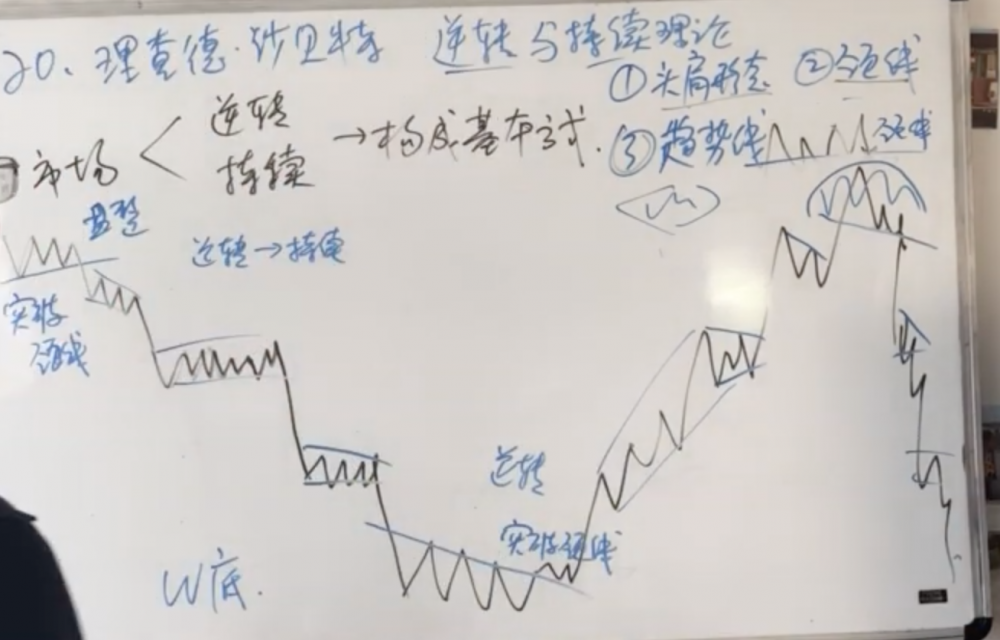 20、理查德·沙贝特 逆转与持续理论
①头肩形态 ②颈线
市场 逆转 持续 →构成基本式.
③趋势线 颈线
盘整
逆转→持续
突破
颈线
逆转
突破颈线
W底.